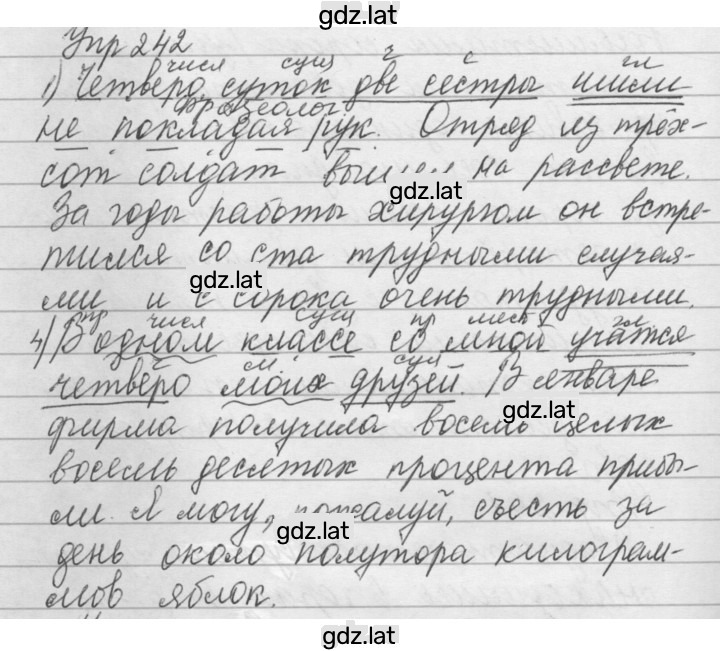 gdz.lat
Упр 242
числ сущ г с гл
1) Четверо суток две сестры шили
фразеолог
не покладая рук. Отряд из трёх-
сот солдат на рассвете.
gdz.lat
За годы работы хирургом он встре-
тился со ста трудными случая-
gdz.lat
ми и с сорока очень трудными.
пр числ сущ пр мест гл
4) В одном классе со мной учатся
м. сущ
четверо моих друзей. В январе
gdz.lat
фирма получила восемь целых
восемь десятых процента прибы-
ли. Я могу, пожалуй, съесть за
gdz.lat
день около полутора килограм-
мов яблок.
gdz.lat